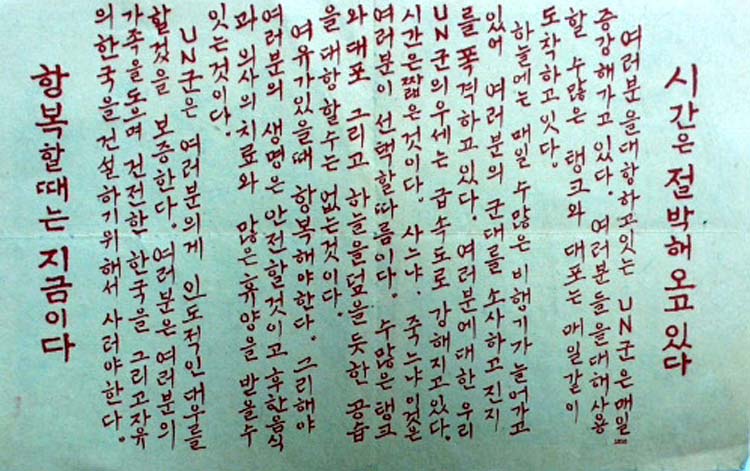 시간은 절박해 오고 있다
여러분을대항하고잇는 UN군은매일
증강해가고 있다. 여러분들을대해사용
할 수많은 탱크와 대포는 매일같이
도착하고잇다.
하늘에는 매일 수많은 비행기가늘어가고
있어 여러분의 군대를 소사하고 진지
를 폭격하고 있다. 여러분에대한 우리
UN군의우세는 급속도로 강해지고있다.
시간은짧은것이다. 사느냐. 죽느냐이것은
여러분이 선택할따름이다. 수많은탱크
와대포 그리고 하늘을덮을듯한 공습
을대항 할수는 없는것이다.
여유가있을때 항복해야한다. 그리해야
여러분의 생명은 안전할것이고후한음식
과 의사의치료와 많은휴양을 받을수
잇는것이다.
UN군은 여러분의게 인도적인대우를
할것을 보증한다. 여러분은여러분의
가족을도으며 건전한 한국을 그리고자유
의한국을건설하기위해서 사러야한다.
항복할때는 지금이다